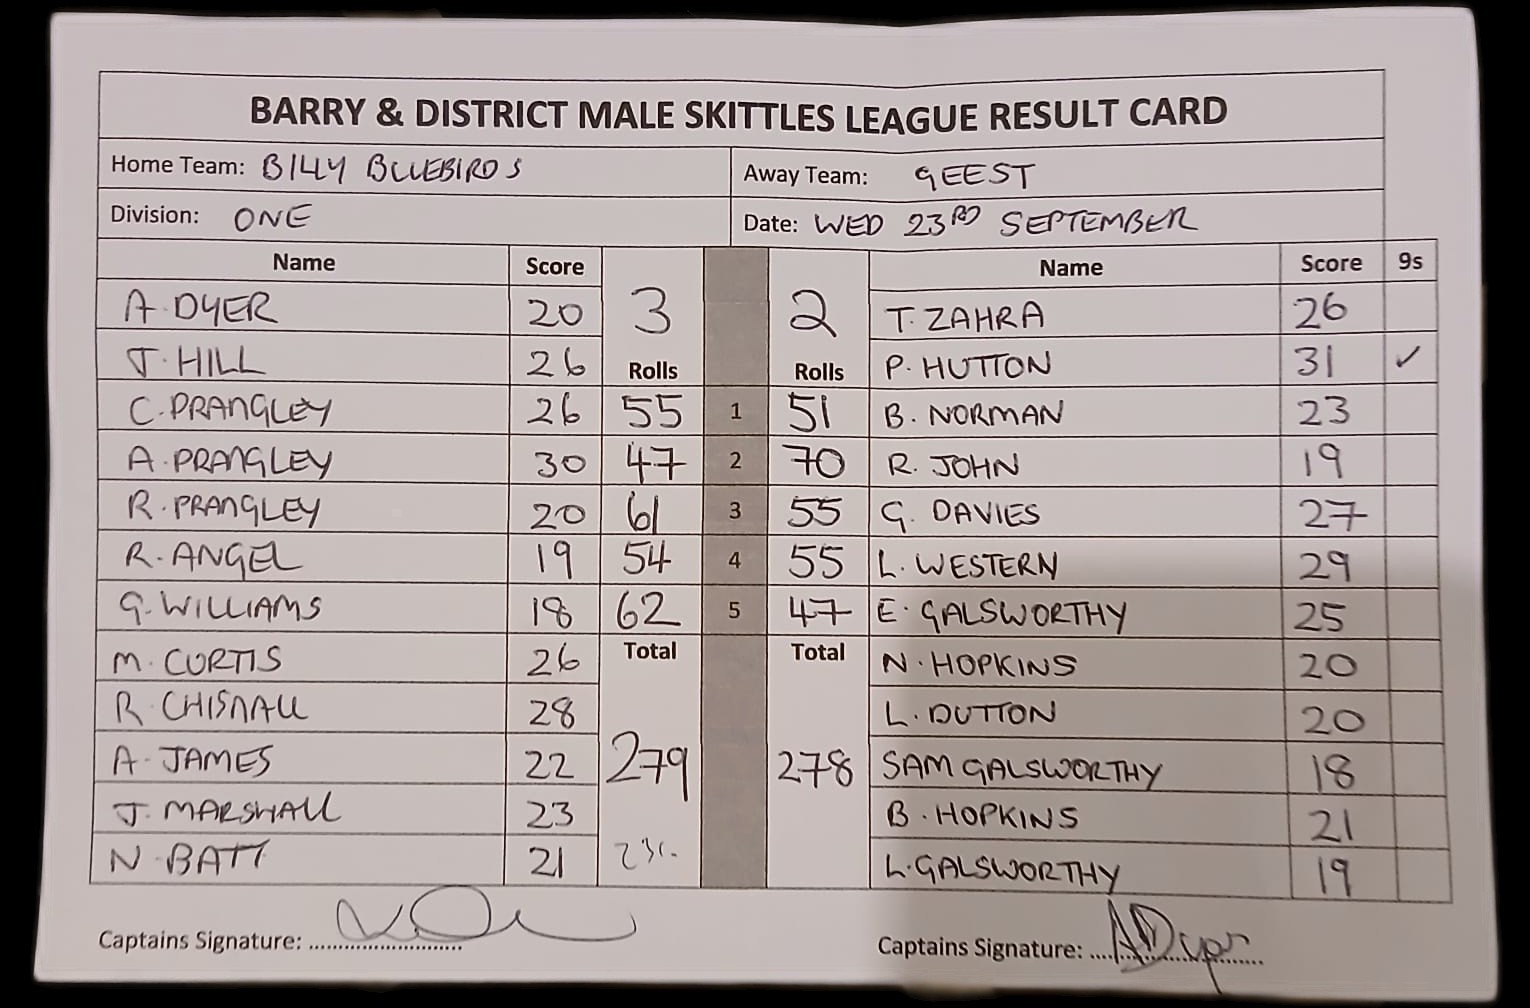 BARRY & DISTRICT MALE SKITTLES LEAGUE RESULT CARD
Home Team: BILLY BLUEBIRDS Away Team: GEEST
Division: ONE Date: WED 23RD SEPTEMBER
Name Score Name Score 9s
A. DYER 20 3 2 T. ZAHRA 26
J. HILL 26 Rolls Rolls P. HUTTON 31 ✓
C. PRANGLEY 26 55 1 51 B. NORMAN 23
A. PRANGLEY 30 47 2 70 R. JOHN 19
R. PRANGLEY 20 61 3 55 G. DAVIES 27
R. ANGEL 19 54 4 55 L. WESTERN 29
G. WILLIAMS 18 62 5 47 E. GALSWORTHY 25
M. CURTIS 26 Total Total N. HOPKINS 20
R. CHISNALL 28 L. DUTTON 20
A. JAMES 22 279 278 SAM GALSWORTHY 18
J. MARSHALL 23 B. HOPKINS 21
N. BATT 21 L. GALSWORTHY 19
Captains Signature: Captains Signature: ADyer